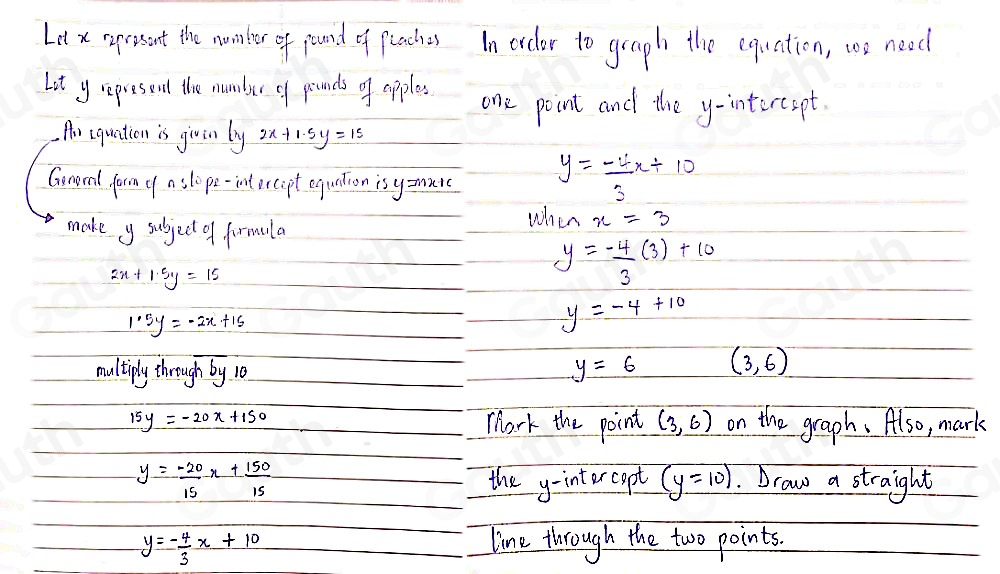 Let x represent the number of pound of peaches
Let y represent the number of pounds of apples.
An equation is given by 2x + 1.5y = 15
General form of a slope-intercept equation is y=mx+c
make y subject of formula
2x + 1.5y = 15
1.5y = -2x +15
multiply through by 10
15y = -20x +150
y = -20/15 x + 150/15
y = -4/3 x + 10
In order to graph the equation, we need
one point and the y-intercept.
y = -4/3 x + 10
When x = 3
y = -4/3 (3) + 10
y = -4 +10
y = 6 (3,6)
Mark the point (3,6) on the graph. Also, mark
the y-intercept (y=10). Draw a straight
line through the two points.